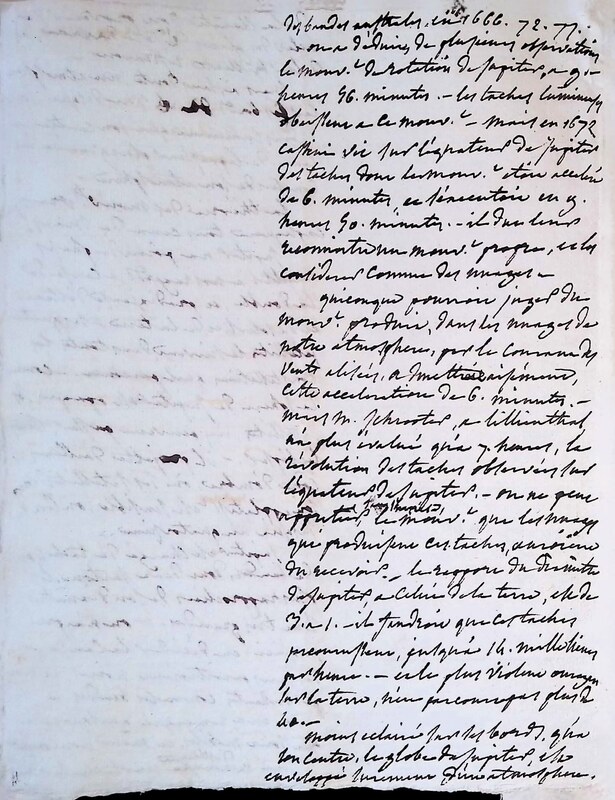 des bandes australes, en 1666. 72. 77.
on a déduire, de plusieurs observations
le mouv.t de rotation de jupiter, a 9.
heures 56. minutes. - les taches lumineuses
obeissent a ce mouv.t - mais en 1672
cassini vit sur l'équateur de jupiter
des taches dont le mouv.t etoit acceléré
de 6. minutes et s'exécutoit en 9.
heures 50. minutes. - il dut leur
reconnoitre un mouv.t propre, et les
considerer comme des nuages -
quiconque pourroit juger du
mouv.t produit, dans les nuages de
notre atmosphere, par le courant des
vents alisés, admettra aisément,
cette acceleration de 6. minutes. -
mais m. schrooter, a lillienthal
n'a plus évalué qu'a 7. heures, la
révolution des taches observées sur
l'équateur de jupiter. - on ne peut
le mouv.t que les nuages
que produisent ces taches, auroient
du recevoir. - le rapport du diametre
de jupiter, a celui de la terre, est de
a 1. - il faudroit que ces taches
parcourussent, jusqu'a 14. millieues
par heure. - et le plus violent ouragan
sur la terre, n'en parcourt pas plus de
40. -
moins eclairé sur les bords, qu'a
son centre, le globe de jupiter, est
enveloppé surement d'une atmosphere.